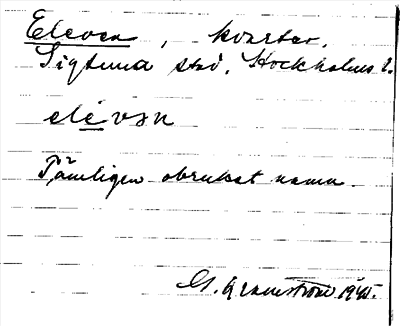 Eleven, kvarter.
Sigtuna stad, Stockholms l.
elévən
Tämligen obrukat namn.
G. Granström 1941.